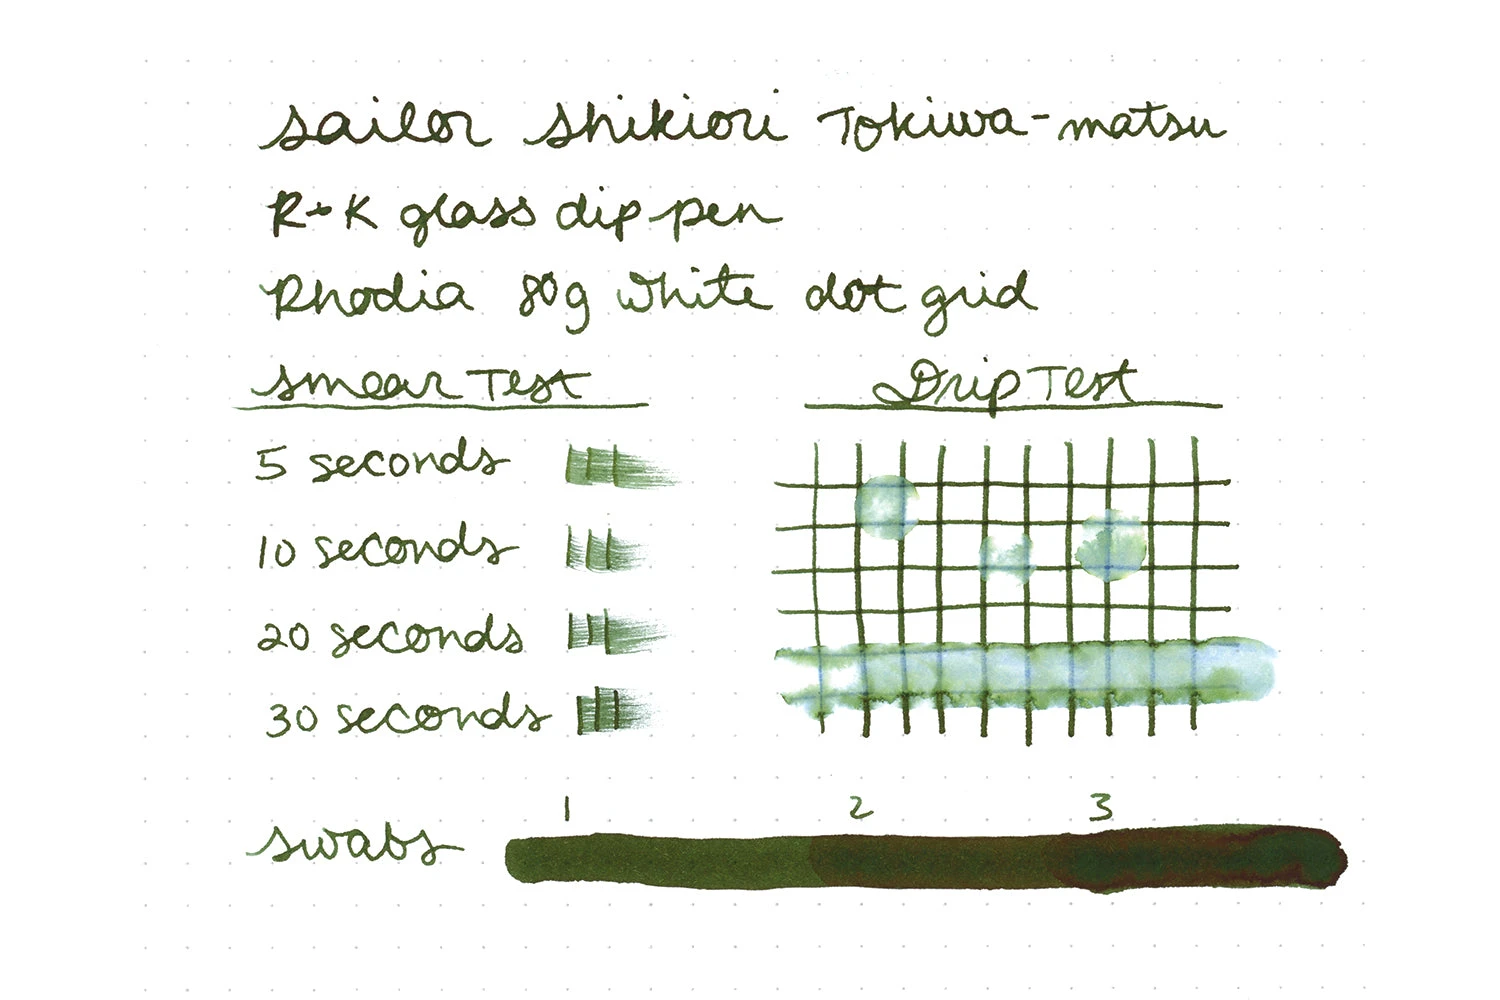 Sailor Shikiori Tokiwa-matsu
R+K glass dip pen
Rhodia 80g white dot grid
Smear Test
Drip Test
5 seconds
10 seconds
20 seconds
30 seconds
1 2 3
Swabs